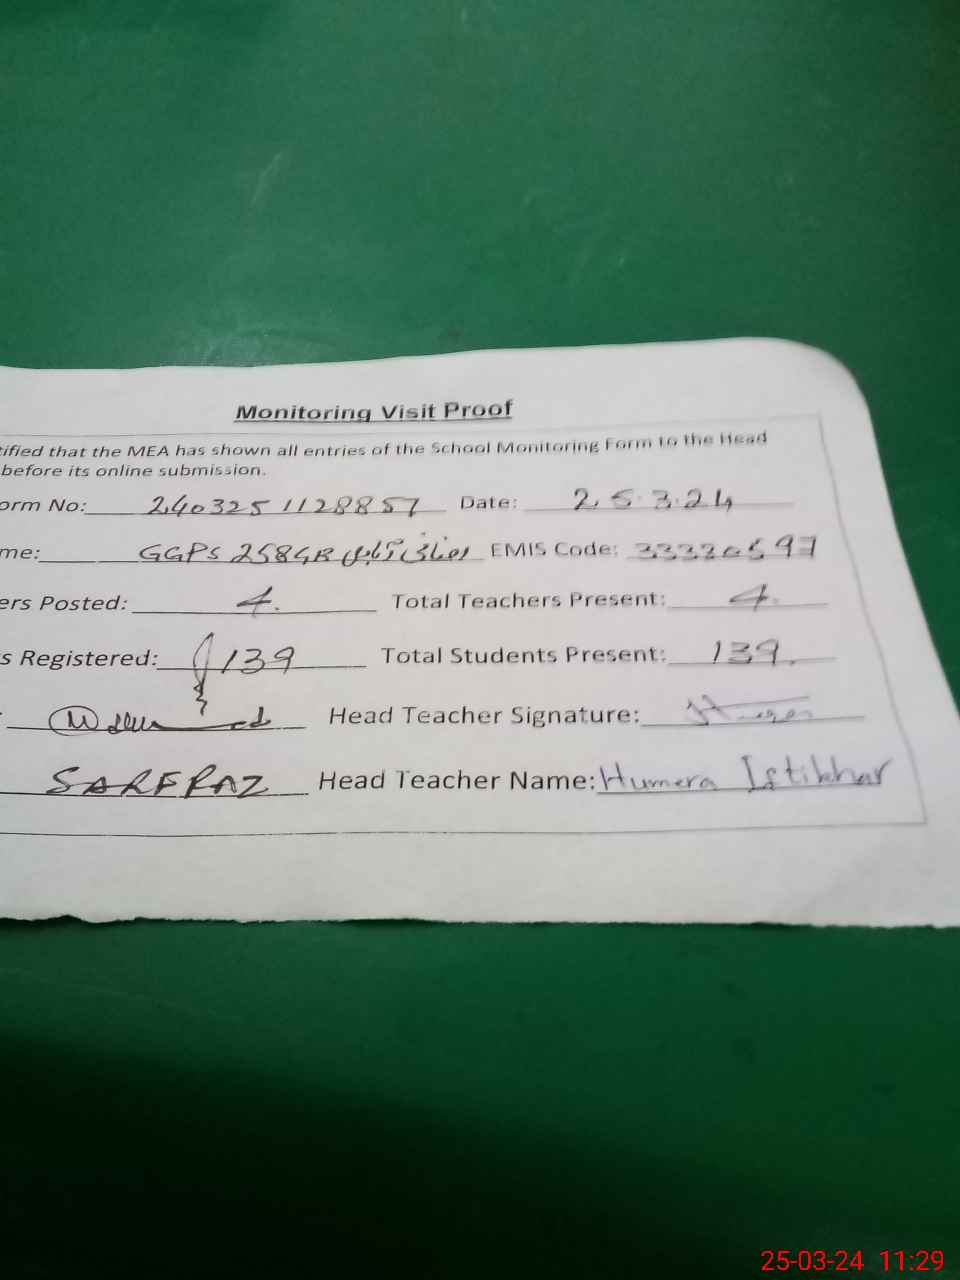 Monitoring Visit Proof
tified that the MEA has shown all entries of the School Monitoring Form to the Head
before its online submission.
orm No: 2403251128857 Date: 25.3.24
me: GGPS 258GB EMIS Code: 33320597
ers Posted: 4. Total Teachers Present: 4.
s Registered: 139 Total Students Present: 139.
Head Teacher Signature:
SARFRAZ Head Teacher Name: Humera Istikhar
25-03-24 11:29